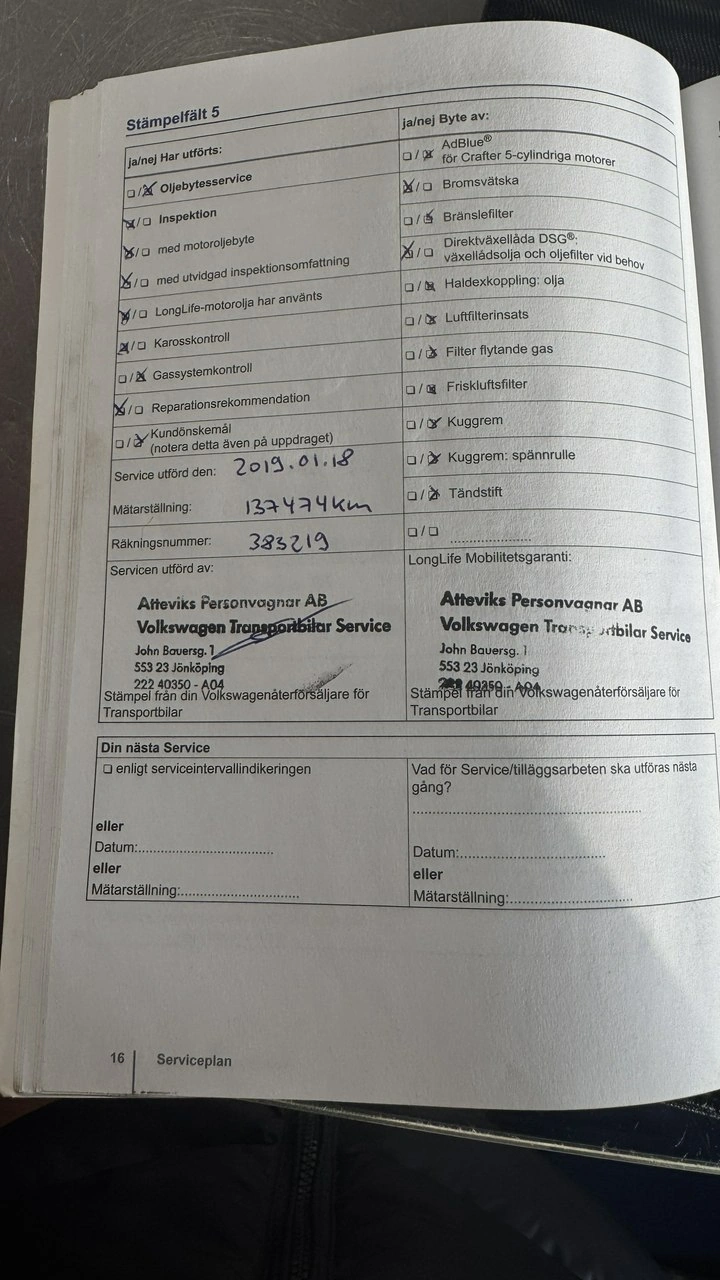 Stämpelfält 5
ja/nej Har utförts:
☐/☒ Oljebytesservice
☒/☐ Inspektion
☒/☐ med motoroljebyte
☒/☐ med utvidgad inspektionsomfattning
☒/☐ LongLife-motorolja har använts
☒/☐ Karosskontroll
☐/☒ Gassystemkontroll
☒/☐ Reparationsrekommendation
☐/☒ Kundönskemål
(notera detta även på uppdraget)
Service utförd den: 2019.01.18
Mätarställning: 137474km
Räkningsnummer: 383219
Servicen utförd av:
Atteviks Personvagnar AB
Volkswagen Transportbilar Service
John Bauersg. 1
553 23 Jönköping
222 40350 - A04
Stämpel från din Volkswagenåterförsäljare för
Transportbilar
ja/nej Byte av:
☐/☒ AdBlue®
för Crafter 5-cylindriga motorer
☒/☐ Bromsvätska
☐/☒ Bränslefilter
☒/☐ Direktväxellåda DSG®:
växellådsolja och oljefilter vid behov
☐/☒ Haldexkoppling: olja
☐/☒ Luftfilterinsats
☐/☒ Filter flytande gas
☐/☒ Friskluftsfilter
☐/☒ Kuggrem
☐/☒ Kuggrem: spännrulle
☐/☒ Tändstift
☐/☐ ......................
LongLife Mobilitetsgaranti:
Atteviks Personvagnar AB
Volkswagen Transportbilar Service
John Bauersg. 1
553 23 Jönköping
222 40350 - A04
Stämpel från din Volkswagenåterförsäljare för
Transportbilar
Din nästa Service
☐ enligt serviceintervallindikeringen
eller
Datum:..............................
eller
Mätarställning:..........................
Vad för Service/tilläggsarbeten ska utföras nästa
gång?
..................................................
Datum:................................
eller
Mätarställning:...........................
16 Serviceplan